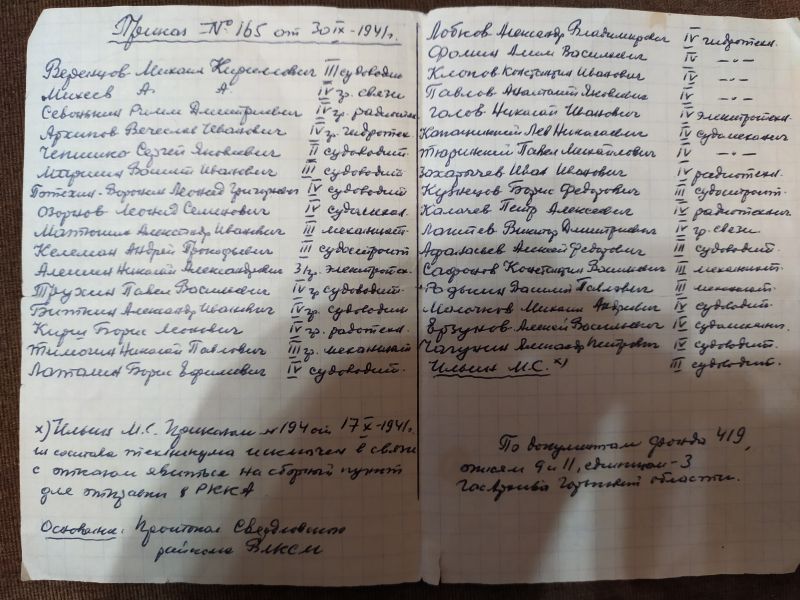 Приказ № 165 от 30 IX-1941г.
Веренцов Михаил Кириллович III судоводит
Михеев А. А. IV гр. связи
Римм Дмитриевич IV гр. радиотехн
Архипов Вечеслав Иванович IV гр. гидротех.
Сергей Яковлевич II судоводит.
Маришин Иванович III судоводит.
Воронин Леонид Григорьевич IV судоводит.
Озорнов Леонид Семенович IV судомехан.
Матюшин Александр Иванович III механист.
Келеман Андрей Прокофьевич III судостроит
Алешин Николай Александрович 3 гр. электротех.
Трухин Павел Васильевич IV гр судоводит.
Александр Иванович IV гр. судоводит
Борис Леонович IV гр. радотехн.
Тимогин Николай Павлович III гр. механист
Латалин Борис Ефимович IV судоводит.
х) Ильин М.С. Приказом № 194 от 17 X-1941г.
из состава техникума исключен в связи
с отказом явиться на сборный пункт
для отправки в РККА
Основание: Протокол Свердловского
райкома ВЛКСМ
Лобков Александр Владимирович IV гидротехн.
Фомин Васильевич IV -"-
Клопов Константин Иванович IV -"-
Павлов Анатолий Яковлевич IV -"-
Голов Николай Иванович IV электротехн
Лев Николаевич IV судомеханич
Павел Михайлович IV -"-
Захарычев Иван Иванович IV радиотехн.
Кузнецов Борис Федорович III судостроит.
Калачев Петр Алексеевич IV радиотехнич
Лаптев Виктор Дмитриевич IV гр. связи.
Афанасьев Алексей Федорович III судоводит.
Сафронов Константин Васильевич III механист.
Радынин Даниил Павлович III механист.
Молочнов Михаил Андреевич IV судоводит.
Ерзунов Алексей Васильевич IV судомеханич.
Александр Петрович IV судоводит.
Ильин М.С. х) III судоводит.
По документам фонда 419,
описям 9 и 11, единицам-3
Госархива Горьковской области.